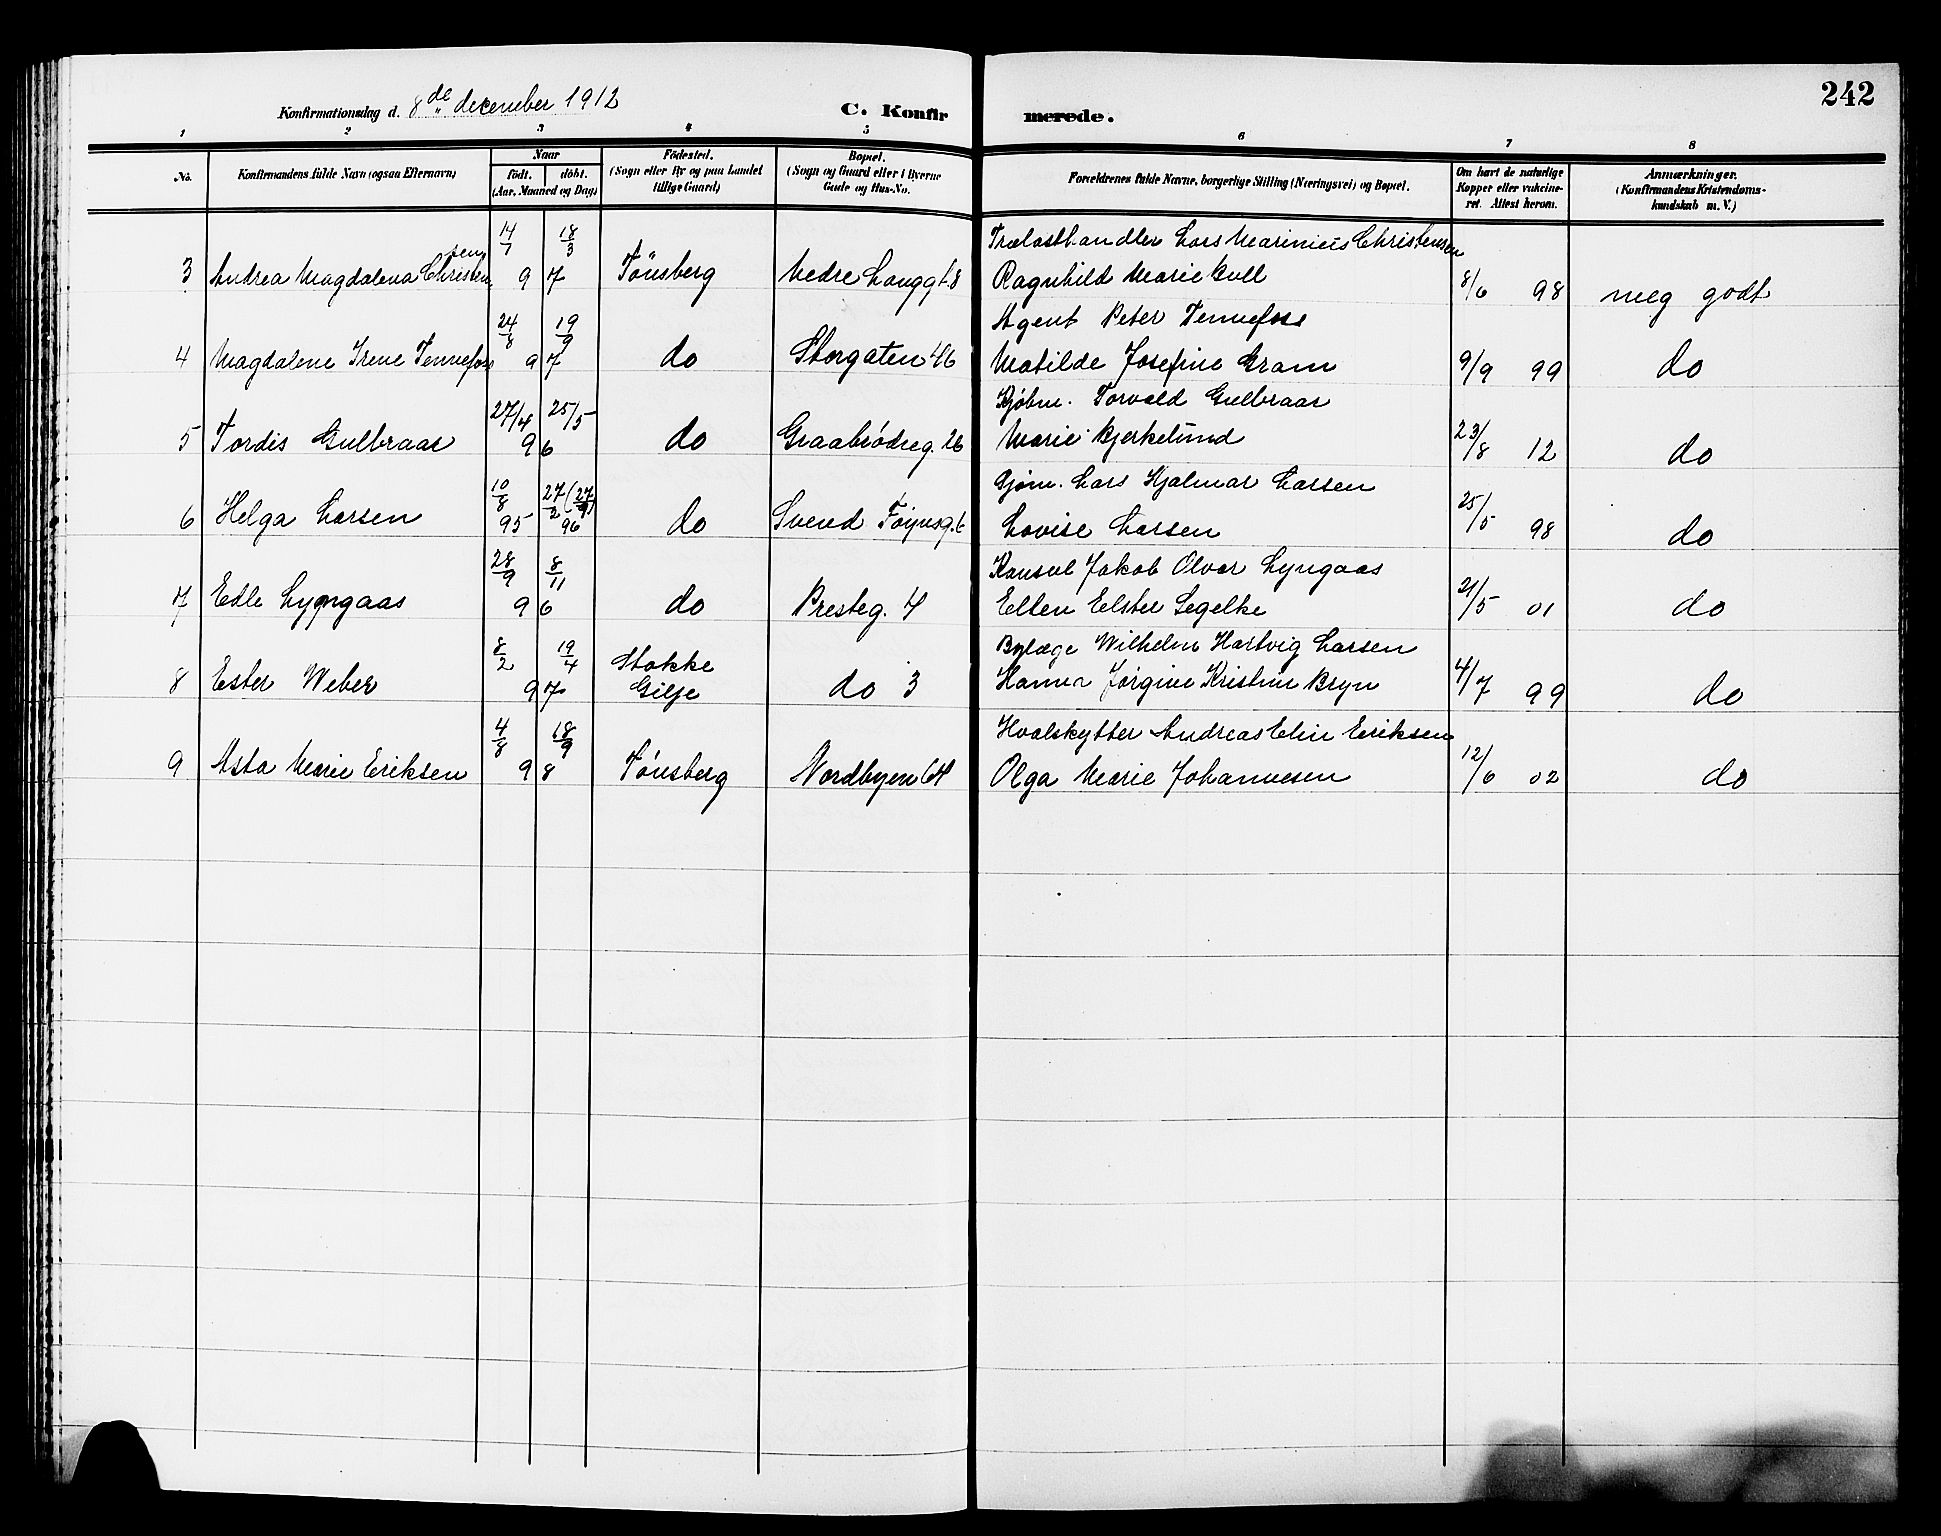 242
Konfirmationsdag d. 8de december 1912
C. Konfirmerede.
1 2 3 4 5 6 7 8
No. Konfirmandens fulde Navn (ogsaa Efternavn) Naar födt. döbt. (Aar, Maaned og Dag) Födested. (Sogn eller By og paa Landet tillige Gaard) Bopæl. (Sogn og Gaard eller i Byerne Gade og Hus-No. Forældrenes fulde Navne, borgerlige Stilling (Næringsvei) og Bopæl. Om havt de naturlige Kopper eller vakcineret. Attest herom. Anmærkninger. (Konfirmandens Kristendomskundskab m. V.)
14/1 18/3 Trælasthandler Lars Marinius Christensen
3 Andrea Magdalena Christensen 97 Tönsberg Nedre Langgt. 8 Ragnhild Marie Kull 8/6 98 meg godt
24/8 19/9 Agent Peter Tennefoss
4 Magdalene Irene Tennefoss 97 do Storgaten 46 Matilde Josefine Gram 9/9 99 do
27/4 25/5 Kjöbm. Torvald Gulbraar
5 Tordis Gulbraar 96 do Graabrödreg. 26 Marie Bjerkelund 23/8 12 do
10/8 27/2 Lars Hjalmar Larsen
6 Helga Larsen 95 96 do Svend Föynsg. 6 Lovise Larsen 25/5 98 do
28/9 8/11 Konsul Jakob Olver Lyngaas
7 Edle Lyngaas 96 do Presteg. 4 Ellen Elster Segelke 21/5 01 do
8/2 19/4 Stokke Bylæge Wilhelm Hartvig Larsen
8 Ester Weber 97 Gilje do 3 Hanna Jörgine Kristine Bryn 4/7 99 do
4/8 18/9 Hvalskytter Andreas Elin Eriksen
9 Asta Marie Eriksen 98 Tönsberg Nordbyen 64 Olga Marie Johannesen 12/6 02 do